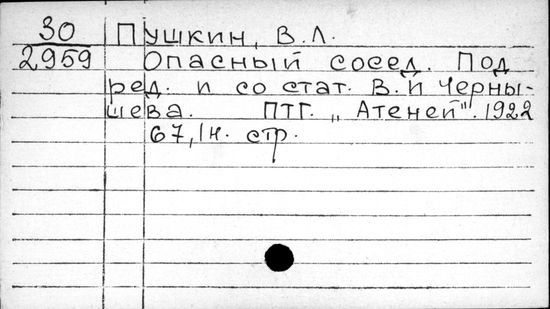 30 Пушкин, В.Л.
2959 Опасный сосед. Под
ред. и со стат. В.И Черны-
шева. ПТГ. „Атеней". 1922
67,1н. стр.